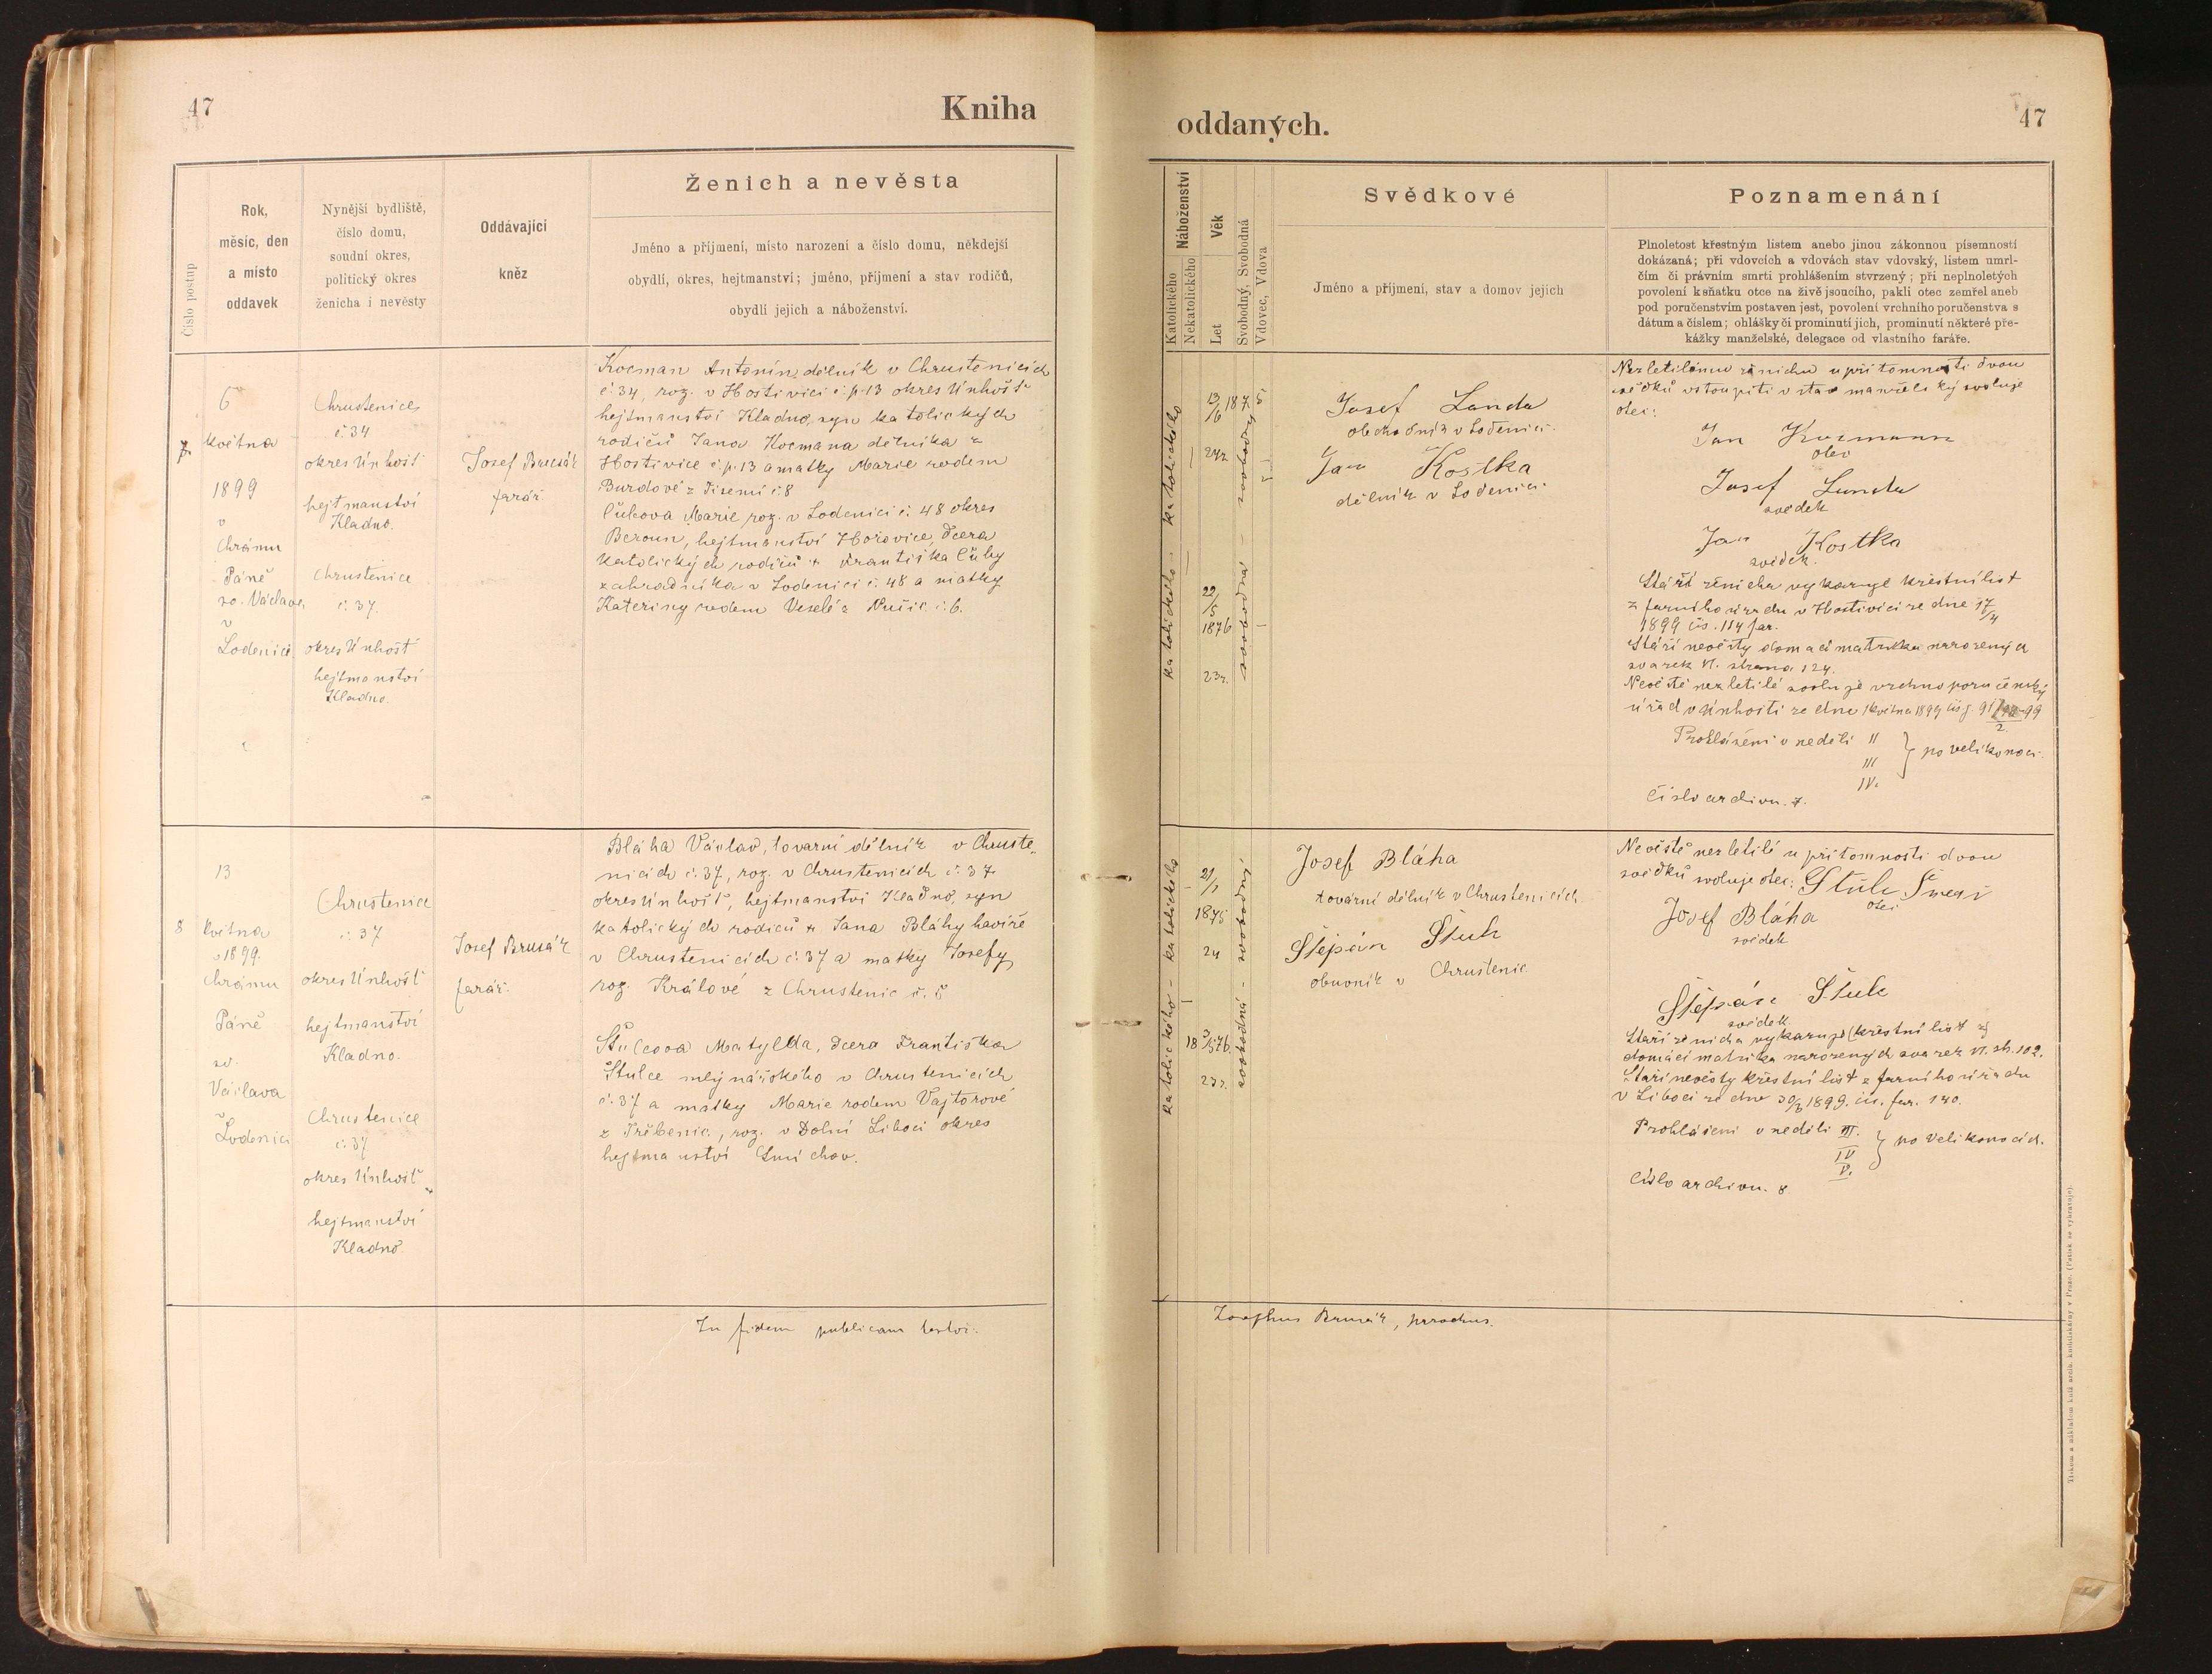 47
Kniha
Číslo postup
Rok,
měsíc, den
a místo
oddavek
Nynější bydliště,
číslo domu,
soudní okres,
politický okres
ženicha i nevěsty
Oddávající
kněz
Ženich a nevěsta
Jméno a příjmení, místo narození a číslo domu, někdejší
obydlí, okres, hejtmanství; jméno, příjmení a stav rodičů,
obydlí jejich a náboženství.
7.
6
května
1899
v
Chrámu
Páně
sv. Václava
v
Lodenici
Chrustenice
č. 34
okres Únhošť
hejtmanství
Kladno.
Chrustenice
č. 37.
okres Únhošť
hejtmanství
Kladno.
Josef Brusák
farář.
Kocman Antonín, dělník v Chrustenicích
č 34, roz. v Hostivici č. p. 13 okres Únhošť
hejtmanství Kladno, syn katolických
rodičů Jana Kocmana dělníka z
Hostivice č. p. 13 a matky Marie rodem
Burdové z č. 8
Marie roz. v Lodenici č. 48 okres
Beroun, hejtmanství Hořovice, dcera
katolických rodičů + Františka
zahradníka v Lodenici č. 48 a matky
Kateřiny rodem Veselé z Nučic č. 6.
8
13
května
1899.
chrámu
Páně
sv.
Václava
v
Lodenici
Chrustenice
č. 37
okres Únhošť
hejtmanství
Kladno.
Chrustenice
č. 37
okres Únhošť
hejtmanství
Kladno.
Josef Brusák
farář.
Bláha Václav, tovarní dělník v Chruste-
nicích č. 37, roz. v Chrustenicích č. 37
okres Únhošť, hejtmanství Kladno, syn
katolických rodičů + Jana Bláhy havíře
v Chrustenicích č. 37 a matky Josefy
roz. Králové z Chrustenic č. 5
Štulcova Matylda, dcera Františka
Štulce mlynářského v Chrustenicích
č. 37 a matky Marie rodem Vajtorové
z Třebenic, roz. v Dolní Liboci okres
hejtmanství Smíchov.
In fidem publicam
oddaných.
47
Náboženství
Katolického
Nekatolického
Věk
Let
Svobodný, Svobodná
Vdovec, Vdova
Svědkové
Jméno a příjmení, stav a domov jejich
Poznamenání
Plnoletost křestným listem anebo jinou zákonnou písemností
dokázaná; při vdovcích a vdovách stav vdovský, listem umrl-
čím či právním smrti prohlášením stvrzený; při neplnoletých
povolení k sňatku otce na živě jsoucího, pakli otec zemřel aneb
pod poručenstvím postaven jest, povolení vrchního poručenstva s
dátum a číslem; ohlášky či prominutí jich, prominutí některé pře-
kážky manželské, delegace od vlastního faráře.
katolického - katolického
13/6 1875
24r.
22/5
1876
23r.
svobodná - svobodný
Josef Landa
obchodník v Lodenici.
Jan Kostka
dělník v Lodenici.
Nezletilému ženichu u přítomnosti dvou
svědků vstoupiti v stav manželský svoluje
otec:
Jan Kocmann
otec
Josef Landa
svědek
Jan Kostka
svědek.
Stáří ženicha vykazuje křestní list
z farního úřadu v Hostivici ze dne 17/4
1899 čís. 114 far.
Stáří nevěsty domací matrika narozených
svazek VI. strana 124.
Nevěstě nezletilé svoluje vrchnoporučenský
úřad v Únhošti ze dne 1 května 1899 čís j.
Prohlášení v neděli II
III
IV.
} po velikonoci.
Číslo archivu. 7.
katolického - katolického
21/1
1875
24
18 3/5 76.
23r.
svobodná - svobodný
Josef Bláha
tovární dělník v Chrustenicích
Štěpán Štulc
obuvník v Chrustenic
Nevěstě nezletilé u přítomnosti dvou
svědků svoluje otec: Štulc
otec
Josef Bláha
svědek
Štěpán Štulc
svědek
Stáří ženicha vykazuje (křestní list z)
domácí matrika narozených svazek VI. str. 102.
Stáří nevěsty křestní list z farního úřadu
v Liboci ze dne 30/3 1899. čís. far. 140.
Prohlášení v neděli III.
IV
V.
} po Velikonocích.
Číslo archivu. 8
Josephus Brusák, parochus.